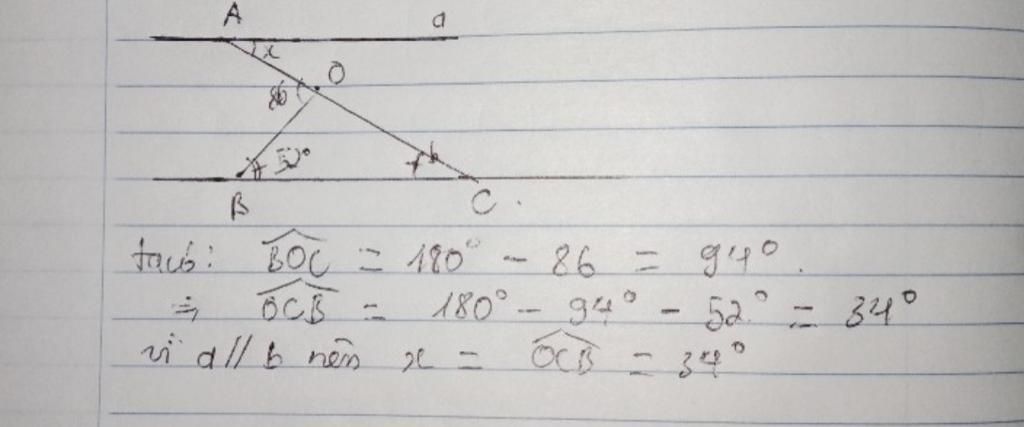 A a
x
O
86
52°
b
B C
ta có: BOC = 180° - 86 = 94°.
⇒ OCB = 180° - 94° - 52° = 34°
vì a // b nên x = OCB = 34°